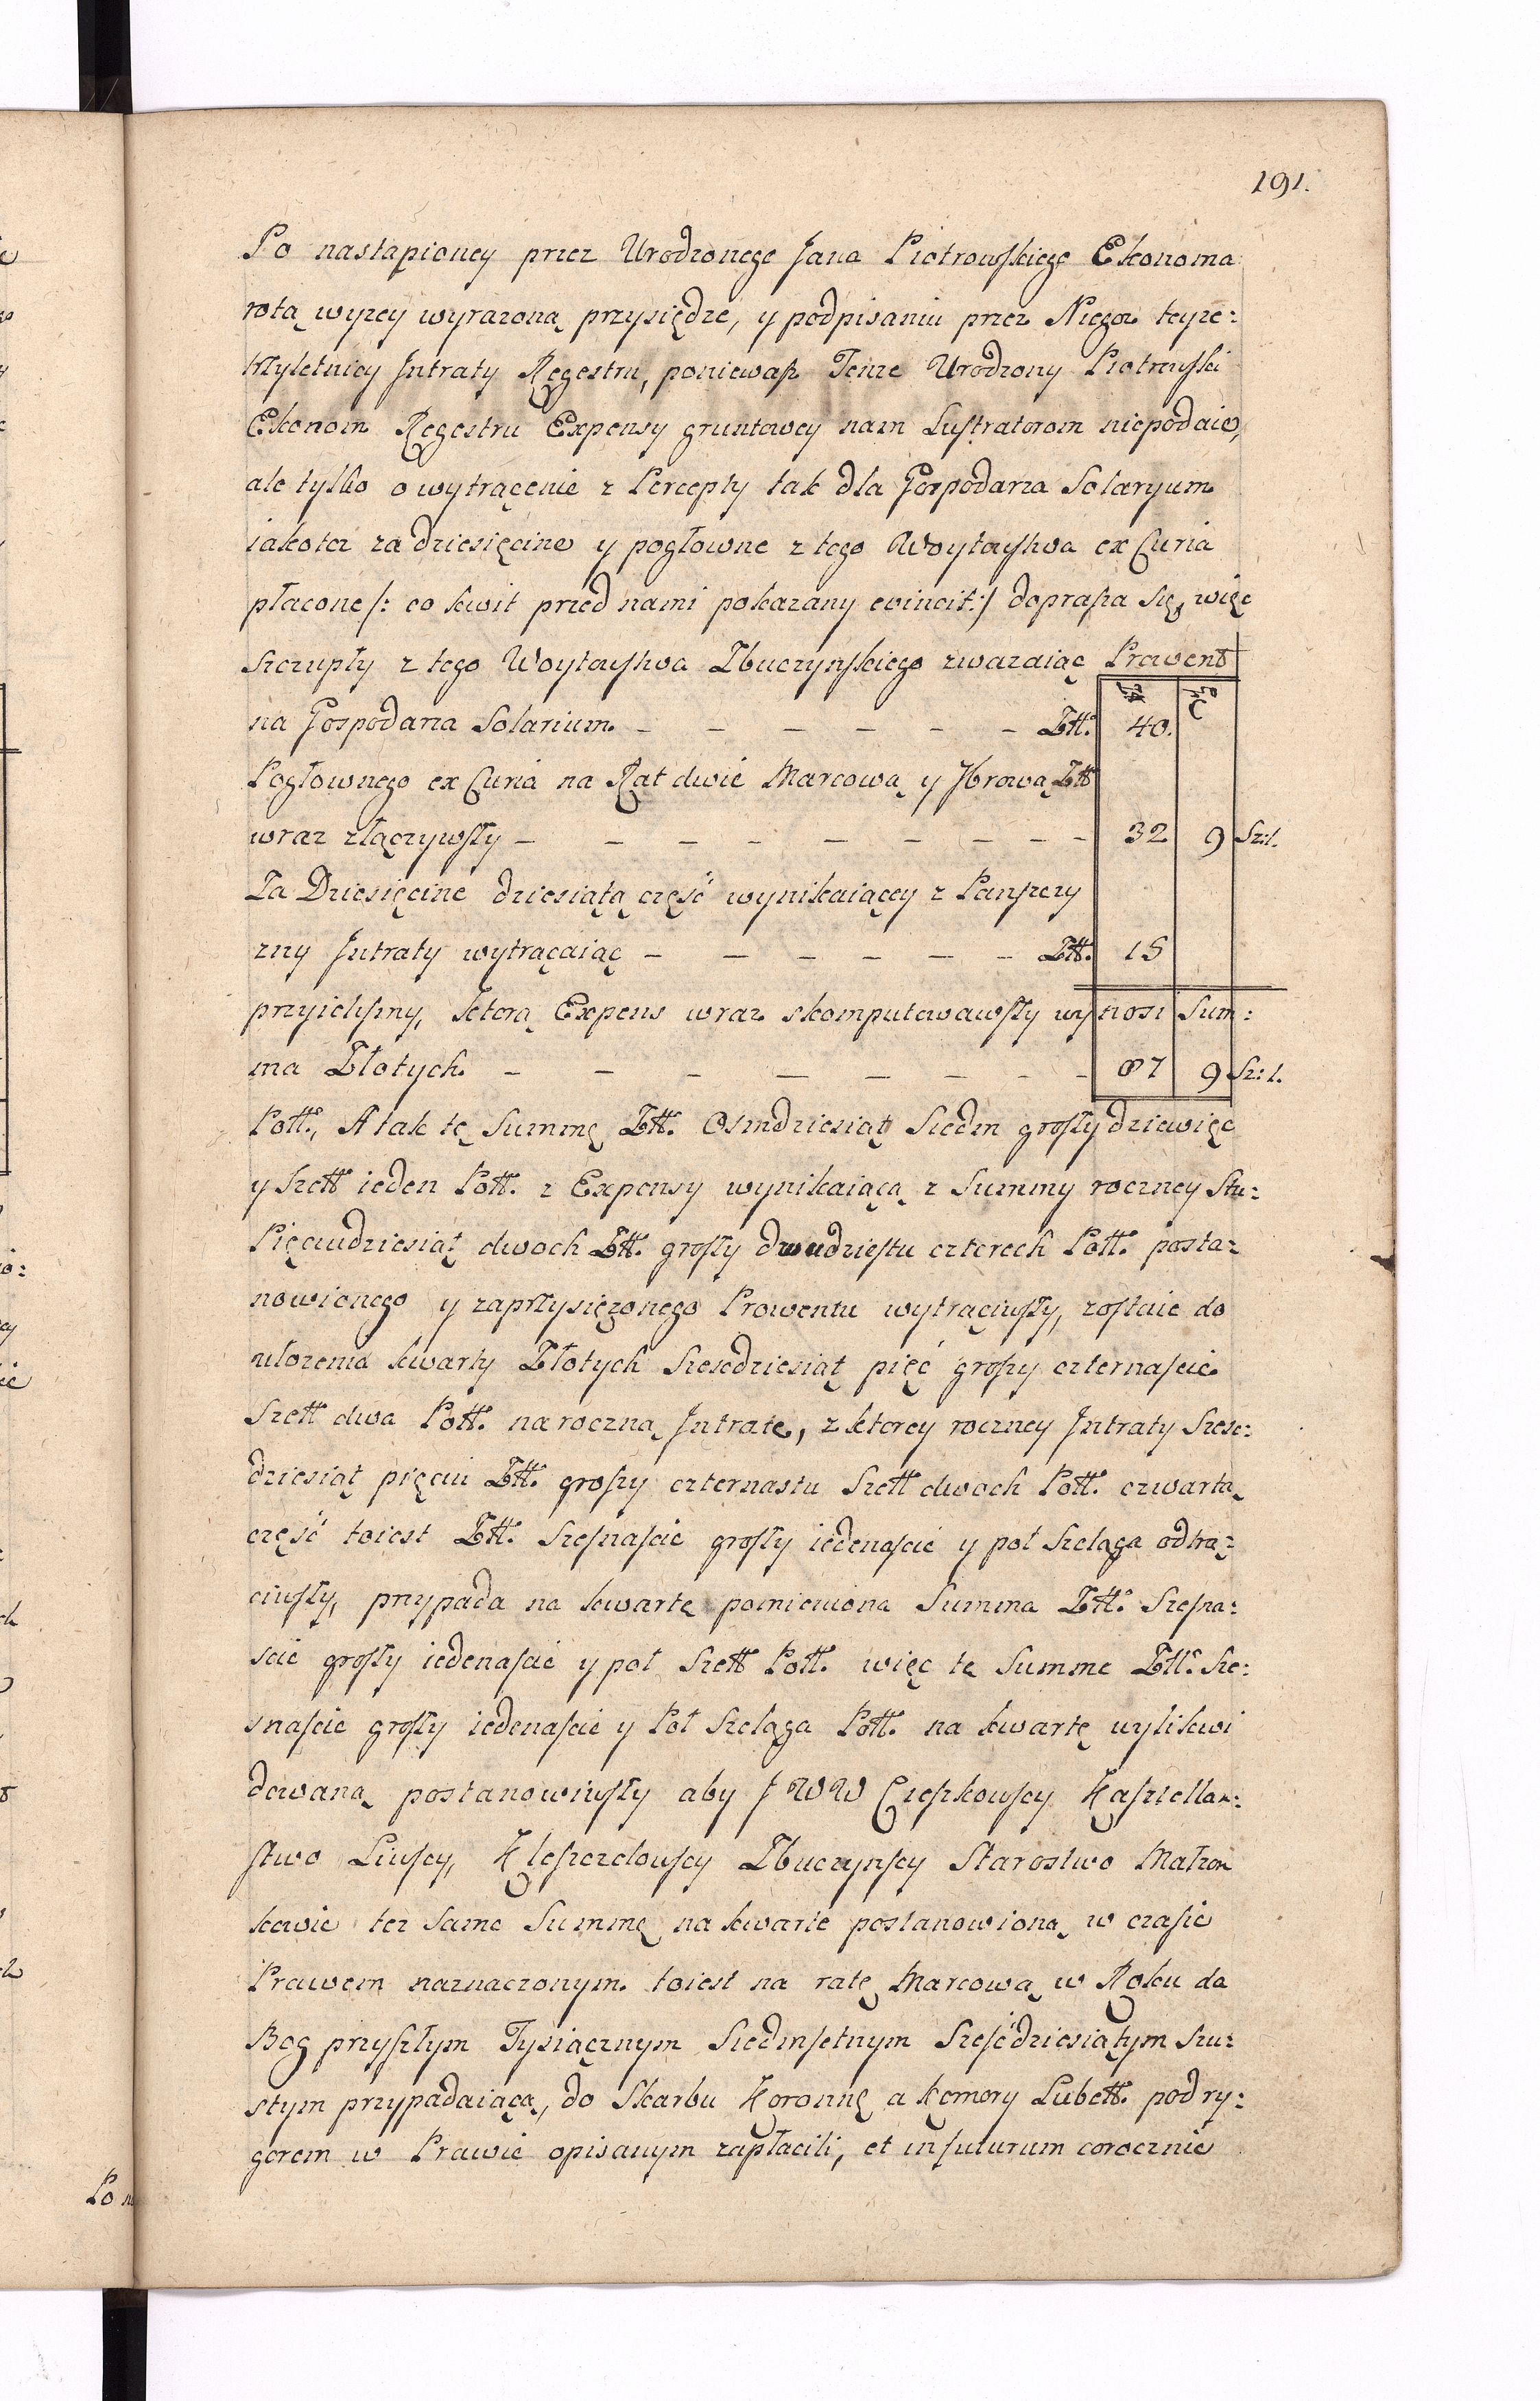 191.
Po nastąpioney przez Urodzonego Jana Piotrowskiego Ekonoma
rotą wyzey wyrazoną przysiędze, y podpisaniu przez Niegoz teyze:
trzyletniey Intraty Regestru, poniewasz Tenze Urodzony Piotrowski
Ekonom Regestru Expensy gruntowey nam Lustratorom niepodaie,
ale tylko o wytrącenie z Percepty tak dla Gospodarza Solaryum
iakotez za dziesięcine y pogłowne z tego Woytowstwa ex Curia
płacone /: co kwit przed nami pokazany evincit :/ doprasza się, więc
szczupły z tego Woytowstwa Zbuczynskiego zwazaiąc Prowent
na Gospodarza Solarium. – – – – – – Złł. 40.
Pogłownego ex Curia na Rat dwie Marcową y 7brową Złł
wraz złączywszy – – – – – – – – – 32 9 Sz: 1.
Za Dziesięcine dziesiątą część wynikaiącey z Panszczy
zny Intraty wytrącaiąc – – – – – – Złł. 15
przyielismy, ktorą Expens wraz skomputowawszy wynosi Sum:
ma Złotych. – – – – – – – – 87 9 Sz: 1.
Poll., A tak tę Summę Złł. Osmdziesiąt Siedm groszy dziewięc
y Szell ieden Poll. z Expensy wynikaiącą z Summy roczney Stu:
Pięciudziesiąt dwoch Złł. groszy dwudziestu czterech Poll. posta:
nowionego y zaprzysięzonego Prowentu wytrąciwszy, zostaie do
ułozenia kwarty Złotych Szescdziesiąt pięć groszy czternascie
Szell dwa Poll. na roczną Intratę, z ktorey roczney Intraty Szesc:
dziesiąt pięciu Złł. groszy czternastu Szell dwoch Poll. czwartą
część toiest Złł. Szesnascie groszy iedenascie y poł Szeląga odtrą:
ciwszy, przypada na kwartę pomieniona Summa Złł. Szesna:
scie groszy iedenascie y poł Szell Poll. więc tę Summe Złł. Sze:
snascie groszy iedenascie y Poł Szeląga Poll. na kwartę wylikwi
dowaną postanowiwszy aby J WW Cieszkowscy Kasztellan:
stwo Liwscy, Kleszczelowscy Zbuczynscy Starostwo Małzon
kowie tez same Summę na kwarte postanowioną w czasie
Prawem naznaczonym. toiest na ratę Marcową w Roku da
Bog przyszłym Tysiącznym Siedmsetnym Sześćdziesiątym Szu:
stym przypadaiącą, do Skarbu Koronnę a Komory Lubell. pod ry:
gorem w Prawie opisanym zapłacili, et in futurum corocznie
Po n